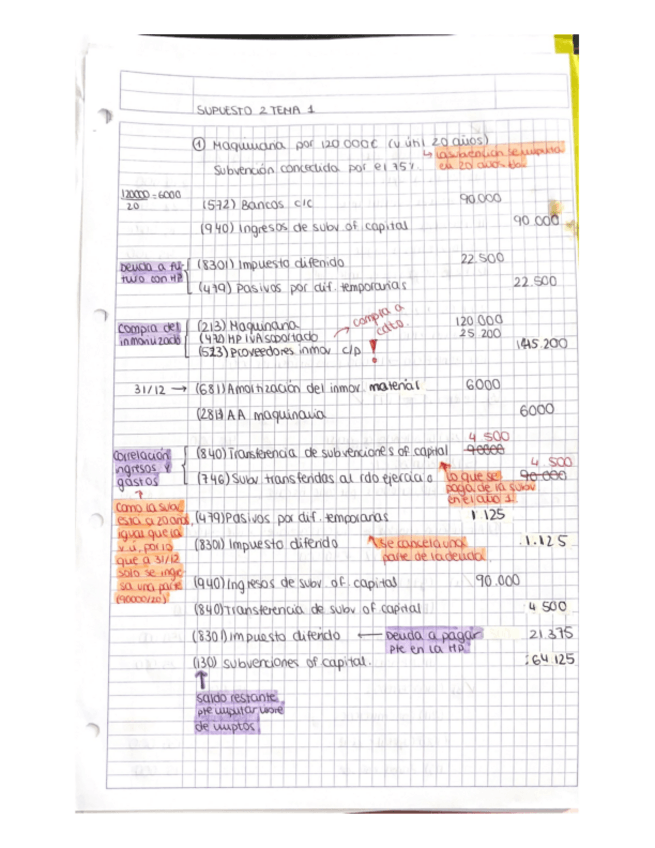 SUPUESTO 2 TEMA 1
① Maquinaria por 120 000€ (v. útil 20 años)
↳ La subvención se imputa
en 20 años tb.
Subvención concedida por el 75%
120000 = 6000
20
(572) Bancos c/c 90.000
(940) Ingresos de subv of capital 90 000
Deuda a fu-
turo con HP
(8301) Impuesto diferido 22.500
(479) Pasivos por dif. temporarias 22.500
Compra del
inmovilizado
(213) Maquinaria 120.000
(472) HP IVA soportado 25 200
(523) Proveedores inmov c/p 145 200
compra a
cxto.
!
31/12 → (681) Amortización del inmov. material 6000
(2813) AA maquinaria 6000
Correlación
ingresos y
gastos
(840) Transferencia de subvenciones of capital 4 500 90000
(746) Subv. transferidas al rdo ejercicio 4 500 90.000
Lo que se
paga de la subv
en el año 1
Como la subv
está a 20 años,
igual que la
v.ú, por lo
que a 31/12
solo se ingre
sa una parte
(90000/20)
(479) Pasivos por dif. temporarias 1 125
(8301) Impuesto diferido 1.125
Se cancela una
parte de la deuda
(940) Ingresos de subv. of capital 90.000
(840) Transferencia de subv of capital 4 500
(8301) Impuesto diferido ← Deuda a pagar 21 375
pte en la HP.
(130) Subvenciones of capital. 64 125
↑
saldo restante
pte imputar libre
de imptos